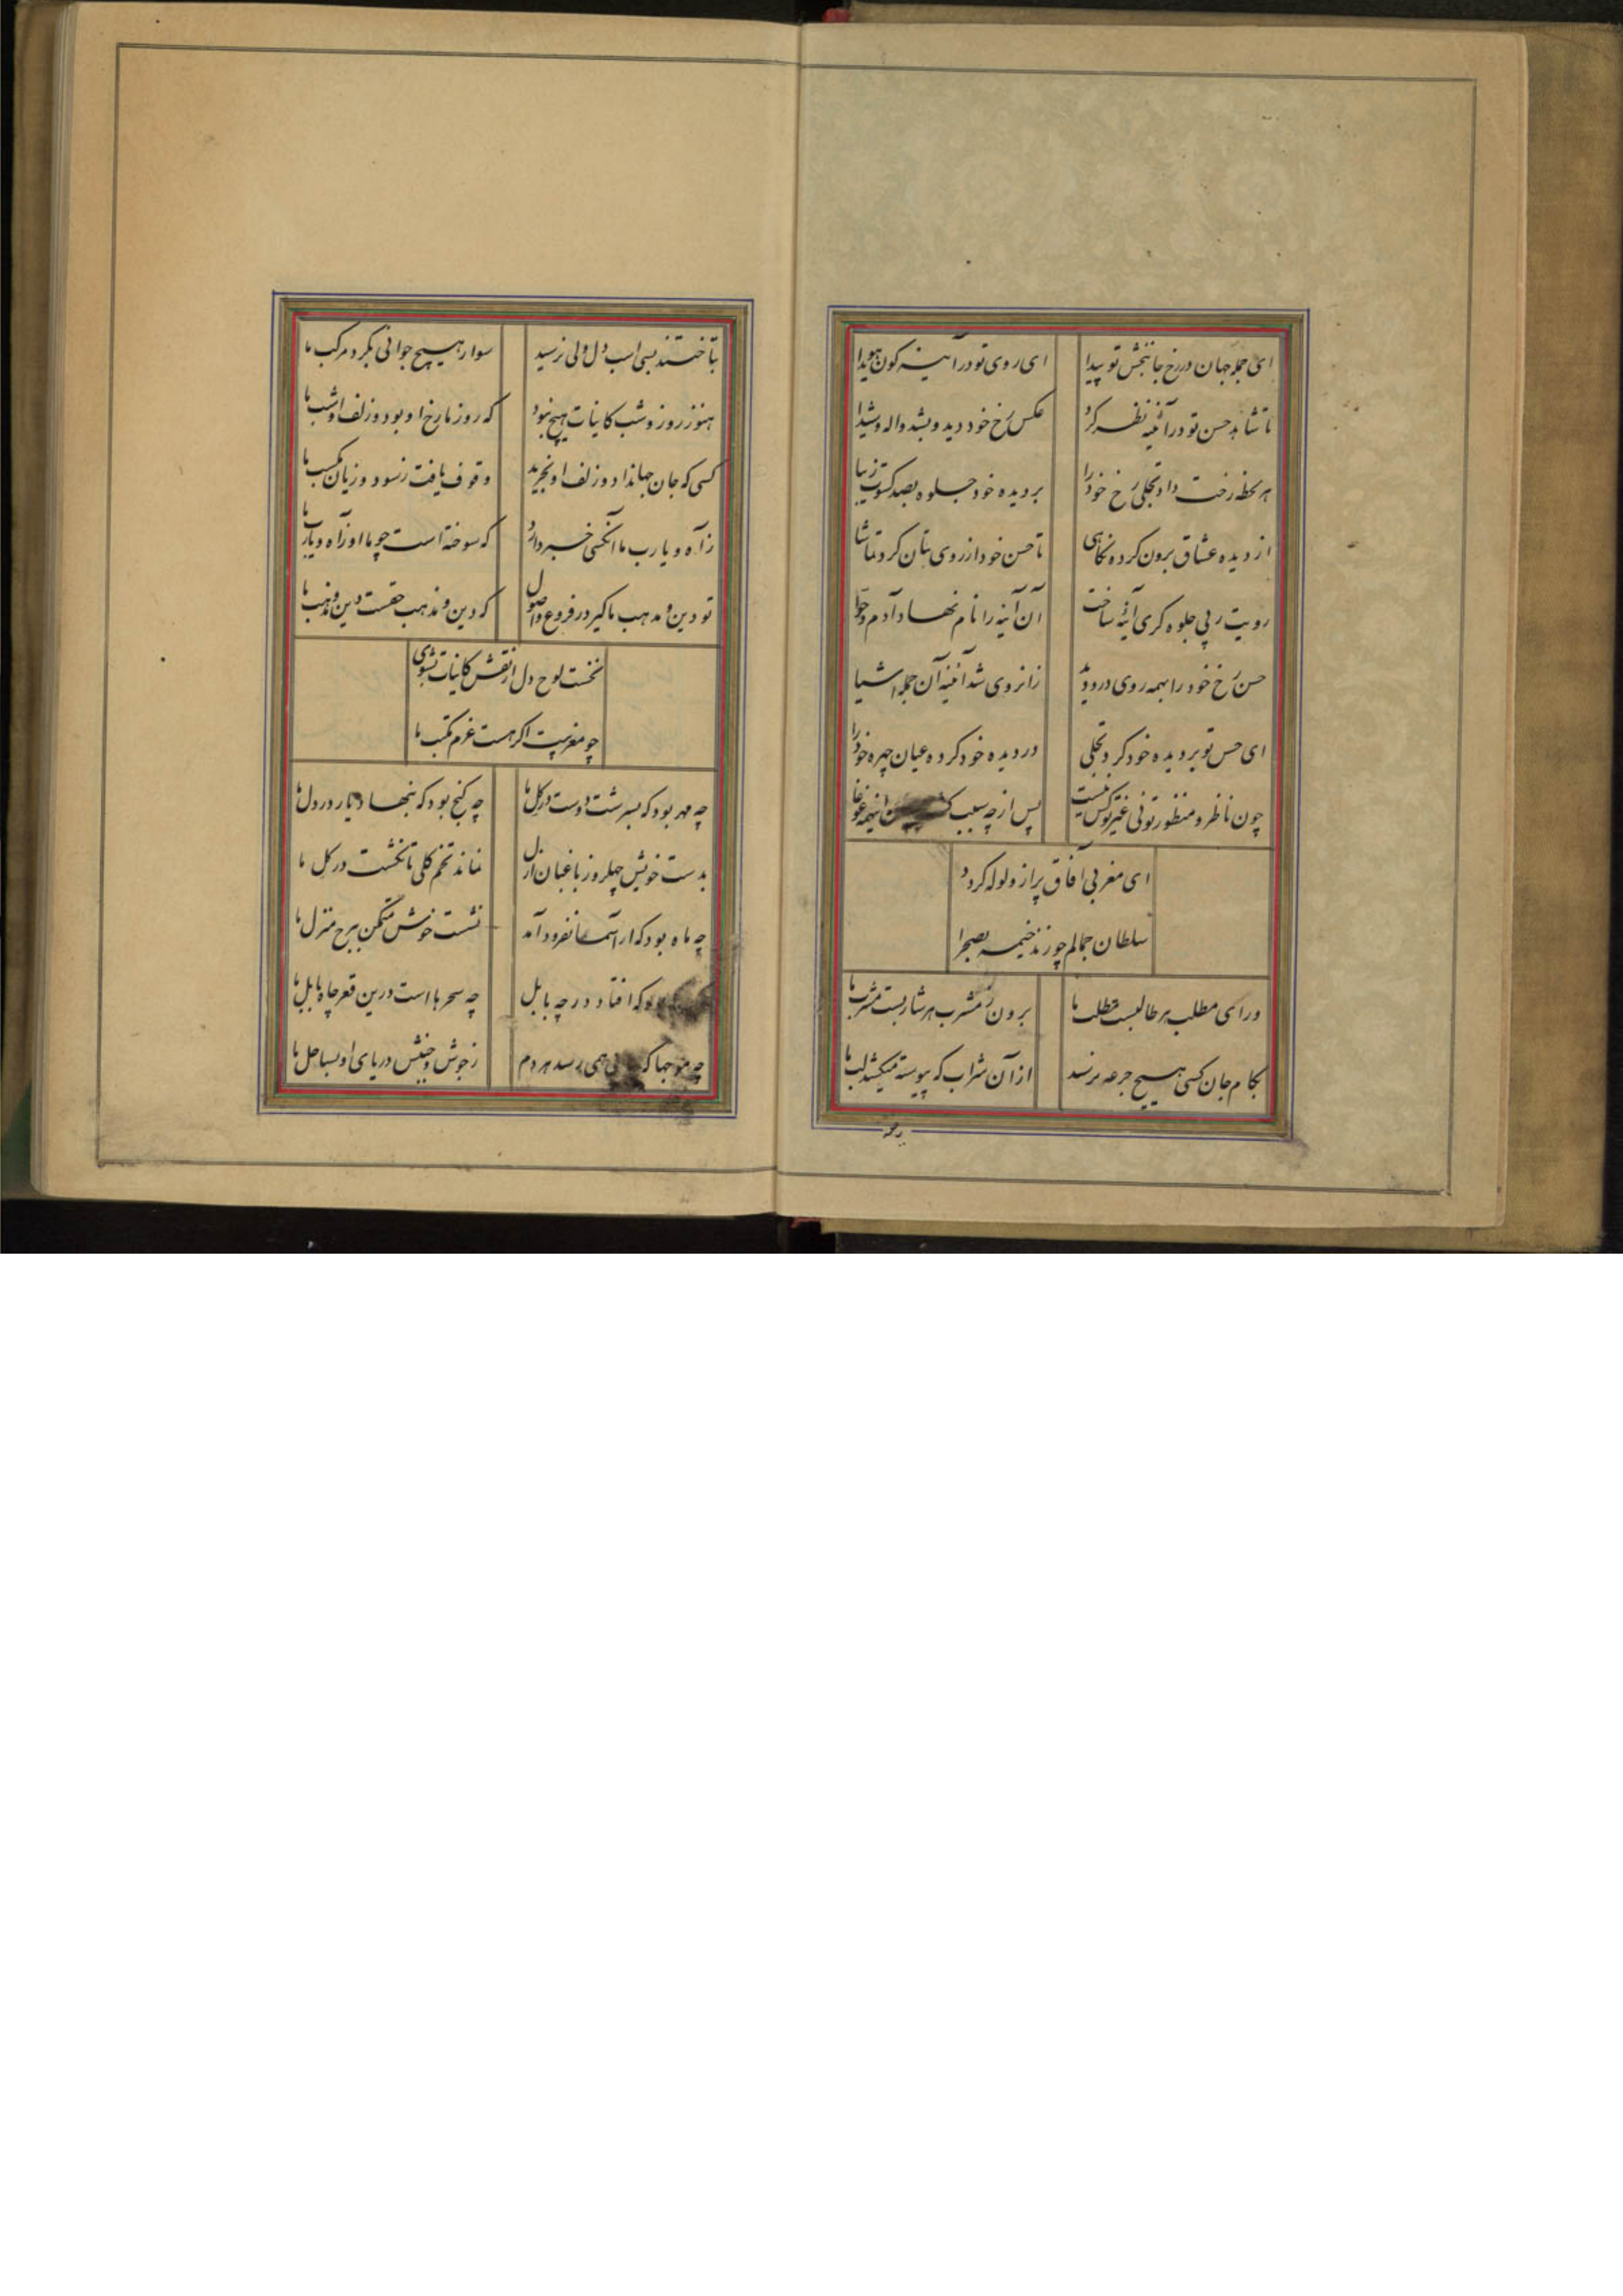 ای جمله جهان در رخ جانبخش تو پیدا ای روی تو در آینه کون هویدا
تا شاهد حسن تو در آئینه نظر کرد عکس رخ خود دید و بشد واله و شیدا
هر لحظه رخت داد تجلی رخ خود را بر دیده خود جلوه بصد کسوت زیبا
از دیده عشاق برون کرده نکاهی تا حسن خود از روی بتان کرد تماشا
رویت ز پی جلوه کری آینه ساخت آن آینه را نام نهاد آدم و حوا
حسن رخ خود را بهمه روی درو دید زانروی شد آئینه آن جمله اشیا
ای حسن تو بر دیده خود کرد تجلی در دیده خود کرده عیان چهره خود را
چون ناظر و منظور توئی غیر تو کس نیست پس از چه سبب اینهمه غوغا
ای مغربی آفاق پر از ولوله کردد
سلطان جمالم چو زند خیمه بصحرا
ورای مطلب هر طالبست مطلب ما برون ز مشرب هر شاربست مشرب ما
بکام جان کسی هیچ جرعه نرسد از آن شراب که پیوسته میکشد لب ما
بتاختند بسی اسب دل ولی نرسید سوار هیچ جوانی بکرد مرکب ما
هنوز روز و شب کاینات هیچ نبود که روز ما رخ او بود و زلف او شب ما
کسی که جان جهانداد و زلف او نخرید وقوف یافت ز سود و زیان مکسب ما
ز آه و یا رب ما آنکسی خبر دارد که سوخته است چو ما او ز آه و یارب ما
تو دین و مذهب ما کیر در فروع و اصول که دین و مذهب حقست دین و مذهب ما
نخست لوح دل از نقش کاینات بشوی
چو مغربیت اکر هست عزم مکتب ما
چه مهر بود که بسرشت دوست در کل ما چه کنج بود که بنهاد یار در دل ما
بدست خویش چهل روز باغبان ازل نماند تخم کلی تا نکشت در کل ما
چه ماه بود که از آسمان فرود آمد نشست خوش متمکن ببرج منزل ما
که افتاد در چه بابل چه سحرها است درین قعر چاه بابل ما
چه موجها که همی رسد هر دم ز جوش و جنبش دریای او بساحل ما